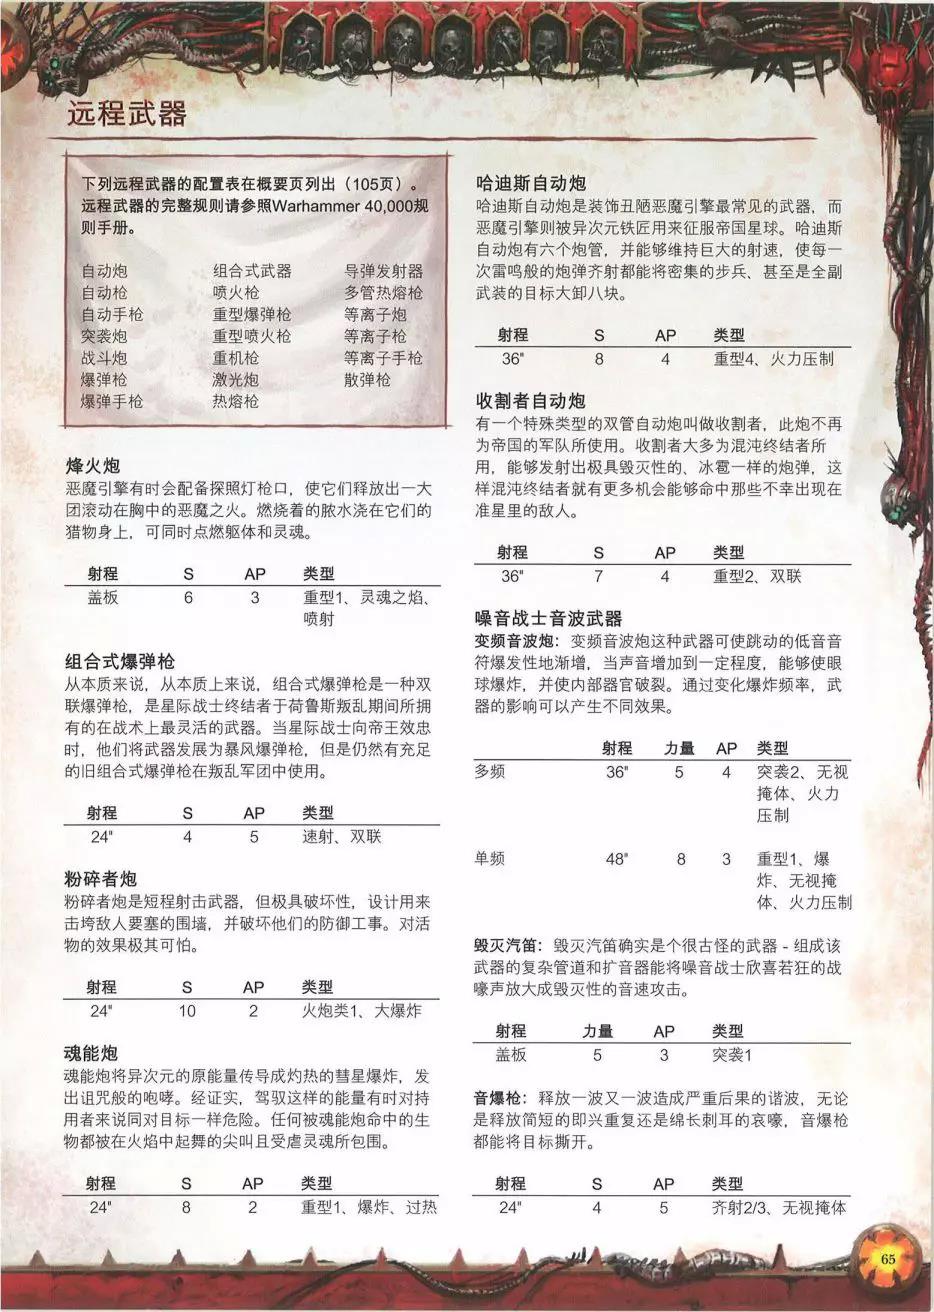 远程武器
下列远程武器的配置表在概要页列出（105页）。
远程武器的完整规则请参照Warhammer 40,000规
则手册。
自动炮 组合式武器 导弹发射器
自动枪 喷火枪 多管热熔枪
自动手枪 重型爆弹枪 等离子炮
突袭炮 重型喷火枪 等离子枪
战斗炮 重机枪 等离子手枪
爆弹枪 激光炮 散弹枪
爆弹手枪 热熔枪
烽火炮
恶魔引擎有时会配备探照灯枪口，使它们释放出一大
团滚动在胸中的恶魔之火。燃烧着的脓水浇在它们的
猎物身上，可同时点燃躯体和灵魂。
射程 S AP 类型
盖板 6 3 重型1、灵魂之焰、
喷射
组合式爆弹枪
从本质来说，从本质上来说，组合式爆弹枪是一种双
联爆弹枪，是星际战士终结者于荷鲁斯叛乱期间所拥
有的在战术上最灵活的武器。当星际战士向帝王效忠
时，他们将武器发展为暴风爆弹枪，但是仍然有充足
的旧组合式爆弹枪在叛乱军团中使用。
射程 S AP 类型
24" 4 5 速射、双联
粉碎者炮
粉碎者炮是短程射击武器，但极具破坏性，设计用来
击垮敌人要塞的围墙，并破坏他们的防御工事。对活
物的效果极其可怕。
射程 S AP 类型
24" 10 2 火炮类1、大爆炸
魂能炮
魂能炮将异次元的原能量传导成灼热的彗星爆炸，发
出诅咒般的咆哮。经证实，驾驭这样的能量有时对持
用者来说同对目标一样危险。任何被魂能炮命中的生
物都被在火焰中起舞的尖叫且受虐灵魂所包围。
射程 S AP 类型
24" 8 2 重型1、爆炸、过热
哈迪斯自动炮
哈迪斯自动炮是装饰丑陋恶魔引擎最常见的武器，而
恶魔引擎则被异次元铁匠用来征服帝国星球。哈迪斯
自动炮有六个炮管，并能够维持巨大的射速，使每一
次雷鸣般的炮弹齐射都能将密集的步兵、甚至是全副
武装的目标大卸八块。
射程 S AP 类型
36" 8 4 重型4、火力压制
收割者自动炮
有一个特殊类型的双管自动炮叫做收割者，此炮不再
为帝国的军队所使用。收割者大多为混沌终结者所
用，能够发射出极具毁灭性的、冰雹一样的炮弹，这
样混沌终结者就有更多机会能够命中那些不幸出现在
准星里的敌人。
射程 S AP 类型
36" 7 4 重型2、双联
噪音战士音波武器
变频音波炮：变频音波炮这种武器可使跳动的低音音
符爆发性地渐增，当声音增加到一定程度，能够使眼
球爆炸，并使内部器官破裂。通过变化爆炸频率，武
器的影响可以产生不同效果。
射程 力量 AP 类型
多频 36" 5 4 突袭2、无视
掩体、火力
压制
单频 48" 8 3 重型1、爆
炸、无视掩
体、火力压制
毁灭汽笛：毁灭汽笛确实是个很古怪的武器 - 组成该
武器的复杂管道和扩音器能将噪音战士欣喜若狂的战
嚎声放大成毁灭性的音速攻击。
射程 力量 AP 类型
盖板 5 3 突袭1
音爆枪：释放一波又一波造成严重后果的谐波，无论
是释放简短的即兴重复还是绵长刺耳的哀嚎，音爆枪
都能将目标撕开。
射程 S AP 类型
24" 4 5 齐射2/3、无视掩体
65